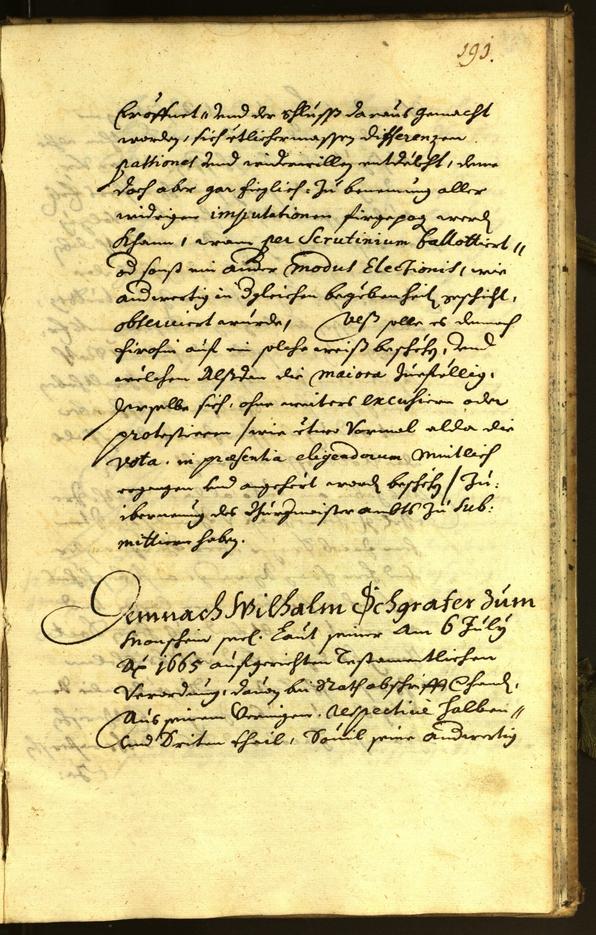 191.
Eröffnet, und der schlusß daraus gemacht
worden, sich etlichermassen differenzen
passiones und widerwillen entdekht, deme
doch aber gar füeglich, zu benemung aller
widrigen imputationen firgepogen werden
khann, wann per Scrutinium ballottiert,,
od sonst ein ander modus Electionis, wie
anderwertig in dgleichen begebenheiten geschiht,
observiert wurde, Alß solle es demach
firohin auf ein solche weiß beschehen, und
welchen Alßdan die maiora zuestellig,
derselbe sich, ohne weiters excusieren oder
protestieren /wie etwo vormal alda die
vota, in praesentia eligendorum mintlich
ergangen und angehört worden beschehen/ zu:
ibernemung des Burgmaister ambts zu sub:
mittiern haben.
Demnach Wilhalm Schgrafer zum
Monschein seel. Laut seiner Am 6 July
Ao 1665 aufgerichten Testamentlichen
Verordnung, davon bei Rath abschrifft
Aus seinem Vermigen, respective halben,,
und Driten theil, Sovil seine anderwertig